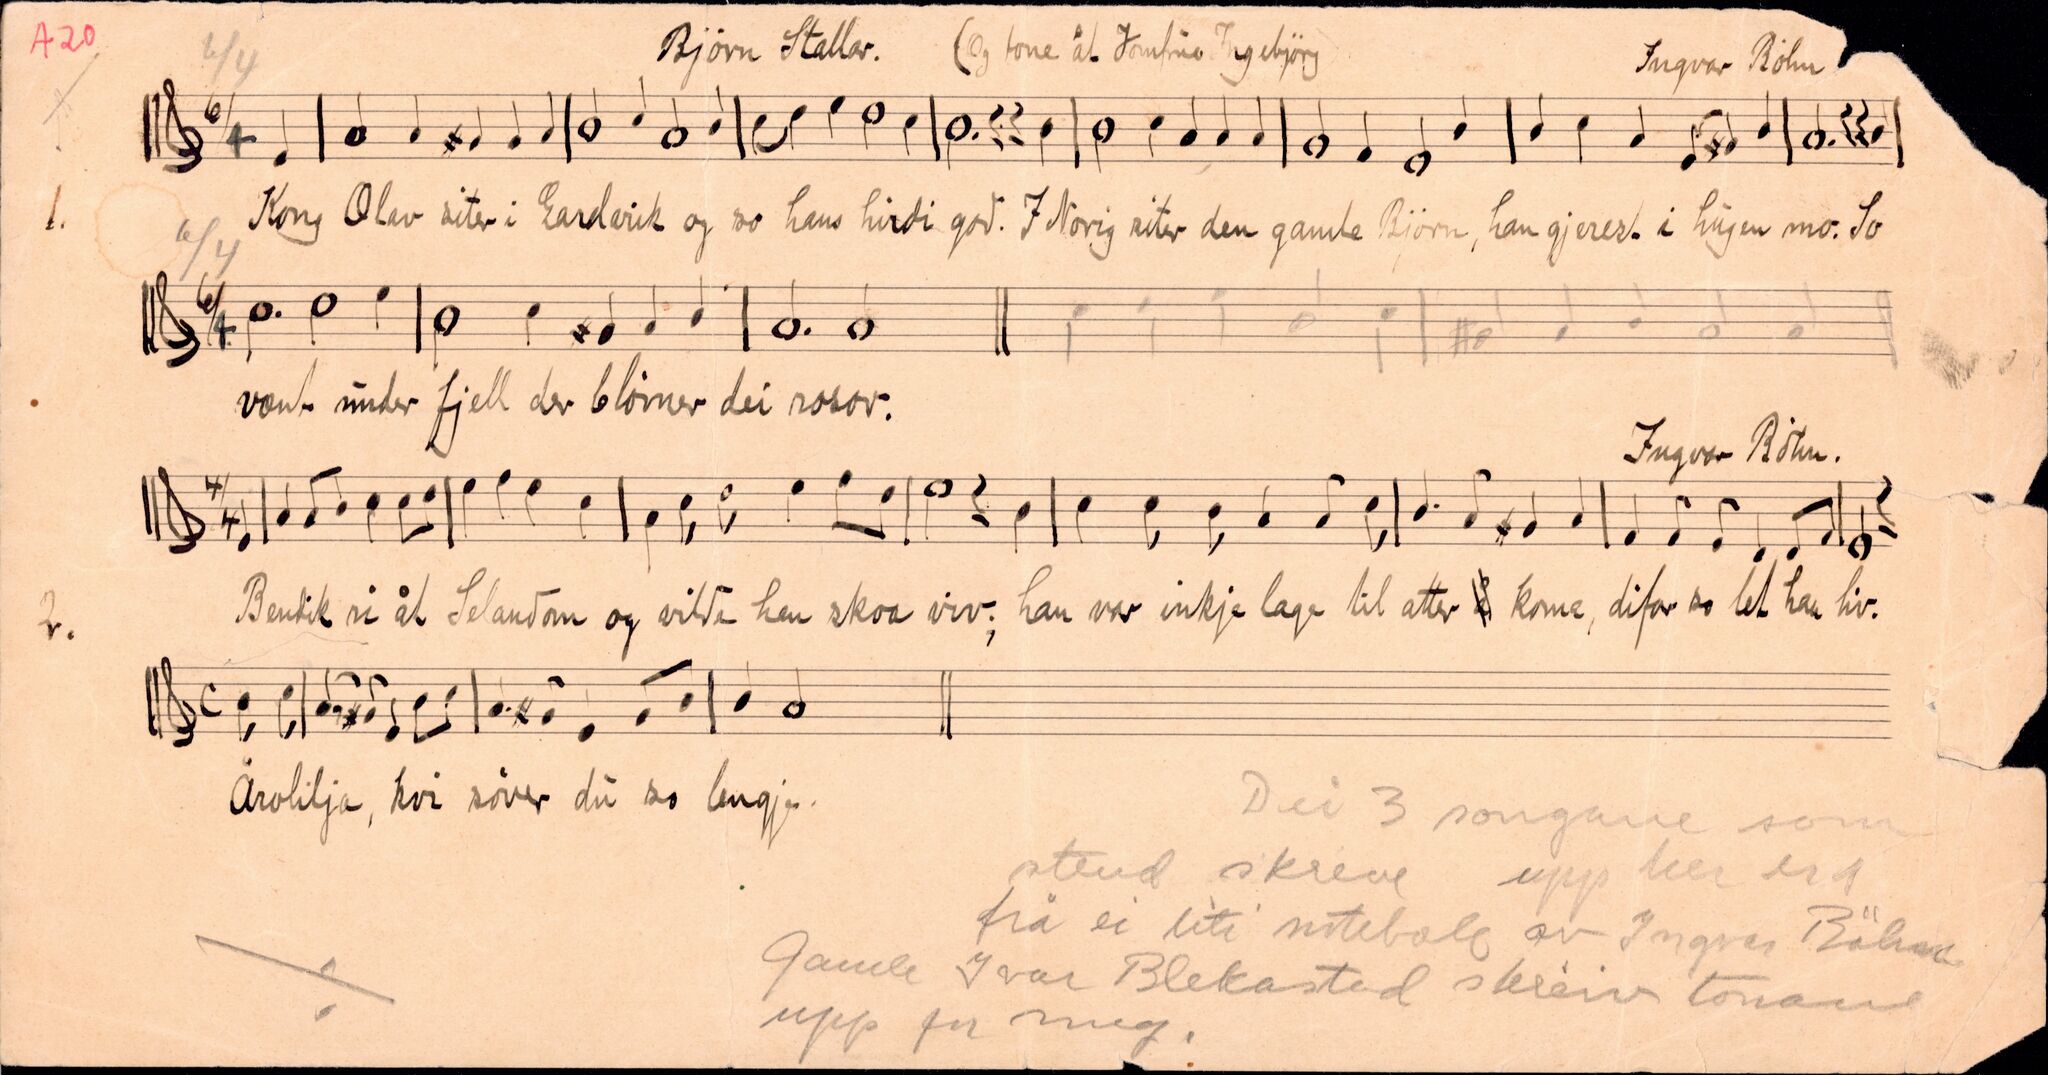 A 20
6/4
Björn Stallar. (Og tone åt Jomfrue Ingebjörg)
Ingvar Böhn
6/4
1. Kong Olav siter i Gardarik og so hans hirdi god. I Norig siter den gamle Björn, han gjerest i hugen mo. So
6/4
6/4
vænt under fjell der blömer dei rosor.
Ingvar Böhn.
4/4
2. Bendik ri åt Selandom og vilde han skoa viv; han var inkje lage til atter koma, difor so let han liv.
C
Årolilja, kvi söver du so lengje.
Dei 3 songane som
stend skreve upp her er
frå ei liti notebok av Ingvar Böhn
Gamle Ivar Blekastad skreiv tonane
upp for meg.